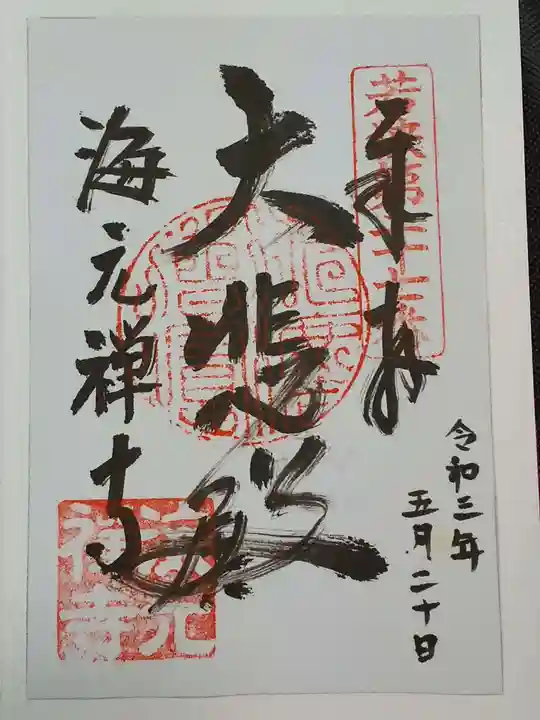 奉拝
大悲殿
海元禅寺
令和三年
五月二十日
海元
禅寺